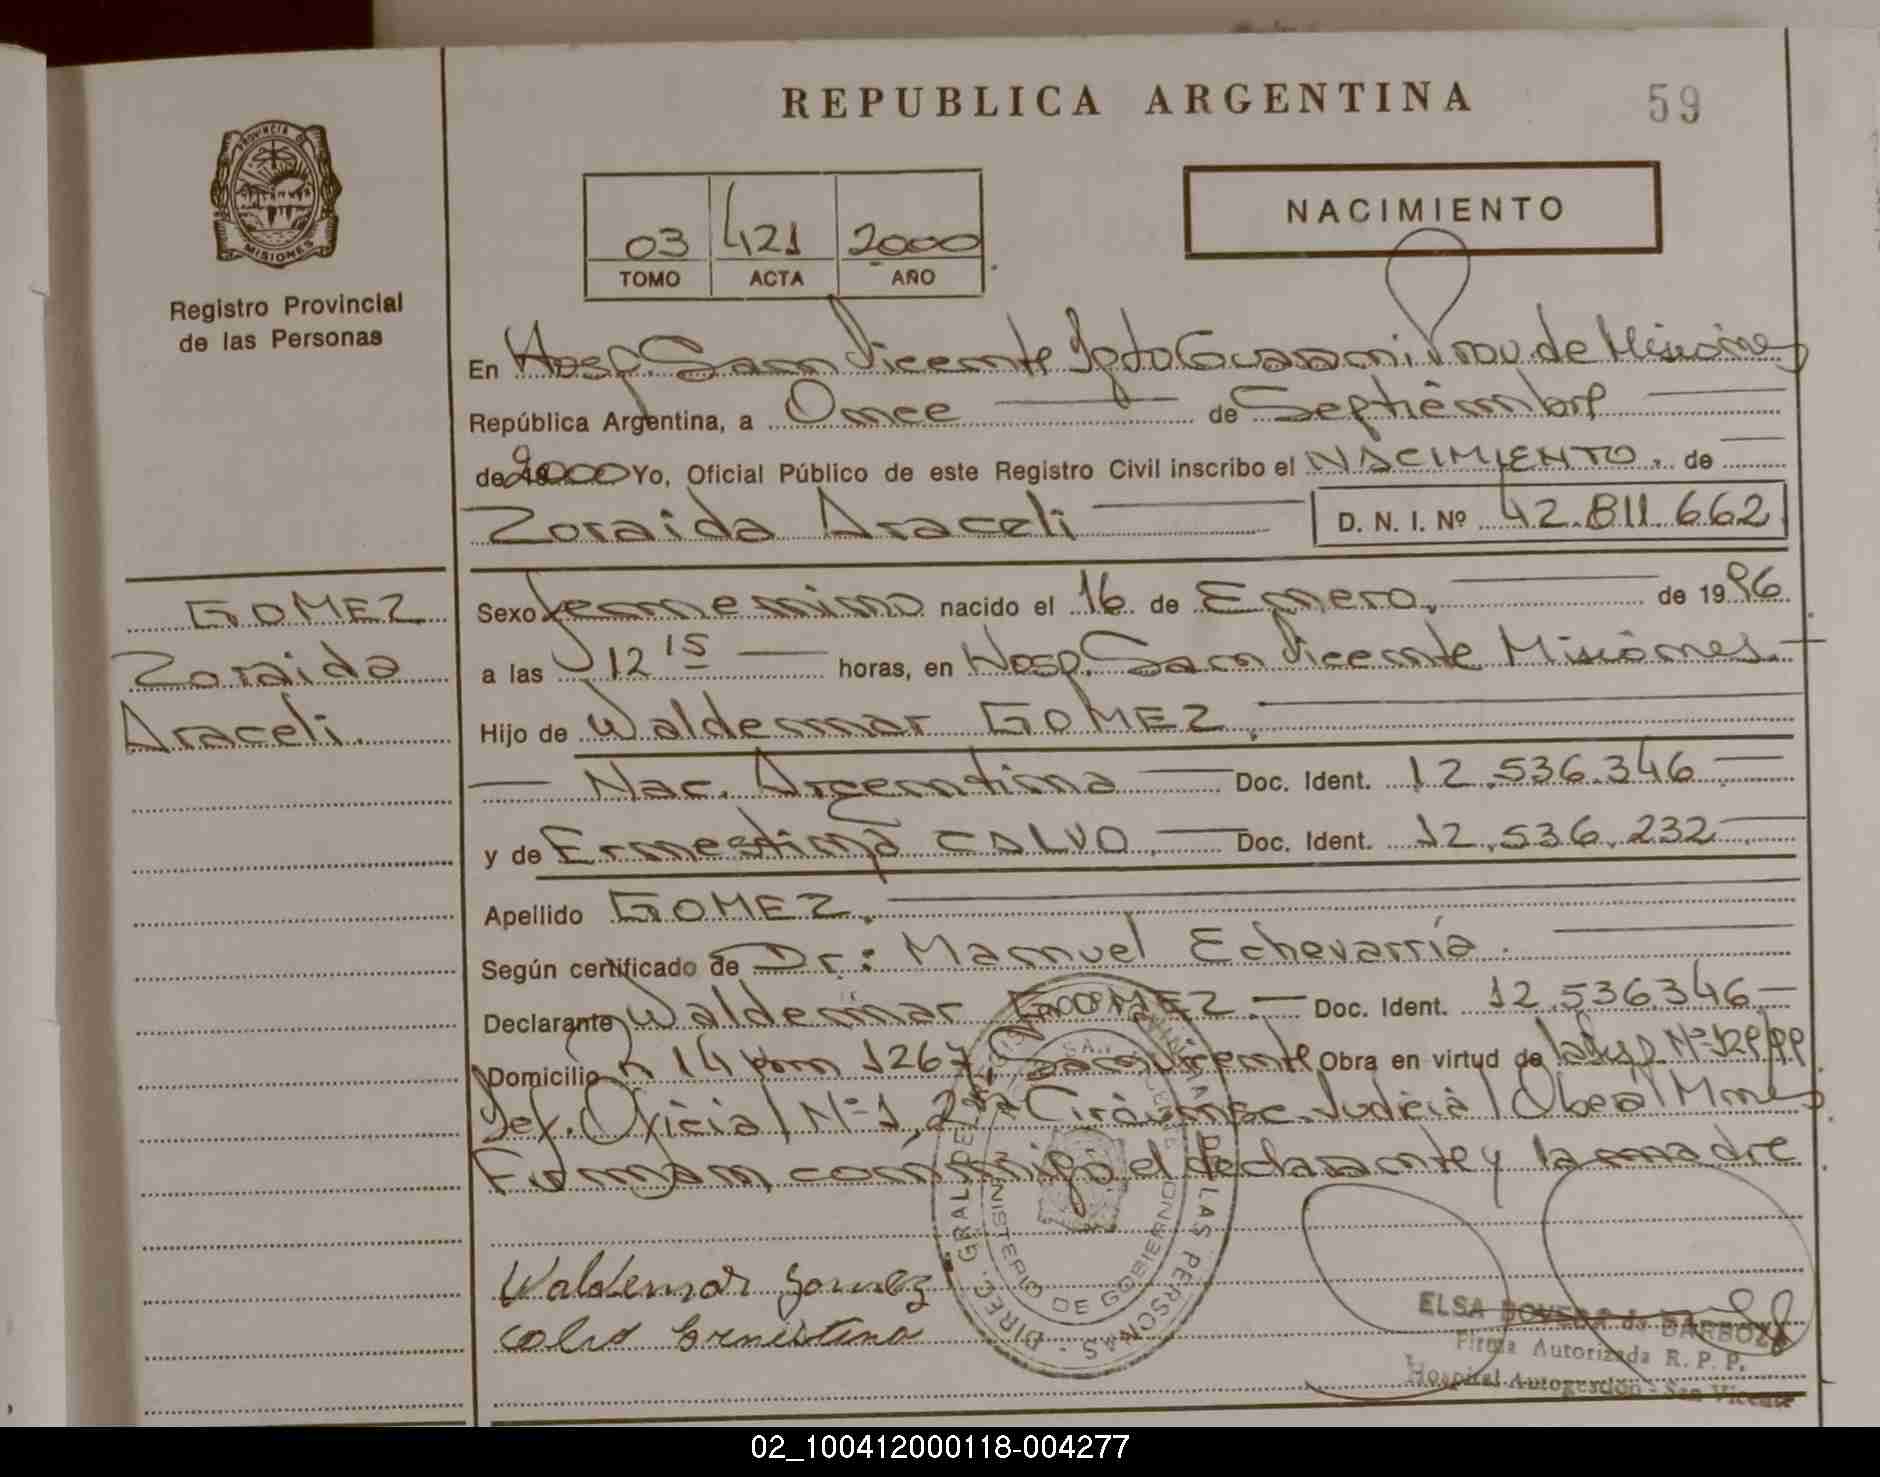 REPUBLICA ARGENTINA
59
PROVINCIA DE MISIONES
Registro Provincial
de las Personas
03 421 2000
TOMO ACTA AÑO
NACIMIENTO
En Hosp. San Vicente Dpto Guarani. Prov. de Misiones
República Argentina, a Once de Septiembre
de 2000 Yo, Oficial Público de este Registro Civil inscribo el NACIMIENTO. de
Zoraida Araceli D. N. I. Nº 42.811.662
GOMEZ
Zoraida
Araceli.
Sexo femenino nacido el 16 de Enero, de 1996
a las 12 15 horas, en Hosp. San Vicente Misiones.
Hijo de Waldemar GOMEZ.
Nac. Argentina Doc. Ident. 12.536.346
y de Ernestina CALVO. Doc. Ident. 12.536.232
Apellido GOMEZ.
Según certificado de Dr: Manuel Echevarría.
Declarante Waldemar GOMEZ. Doc. Ident. 12.536.346
Domicilio 14 km 1267, San Vicente Obra en virtud de
Def. Oficial Nº 1, 2da Circunsc. Judicial Oberá Mnes
Firman conmigo el declarante y la madre
Waldemar Gomez
Calvo Ernestina
DIREC. GRAL. DEL REGISTRO PROVINCIAL DE LAS PERSONAS
MINISTERIO DE GOBIERNO
ELSA de BARBOZA
Firma Autorizada R. P. P.
Hospital Autogestión - San Vicente
02_100412000118-004277